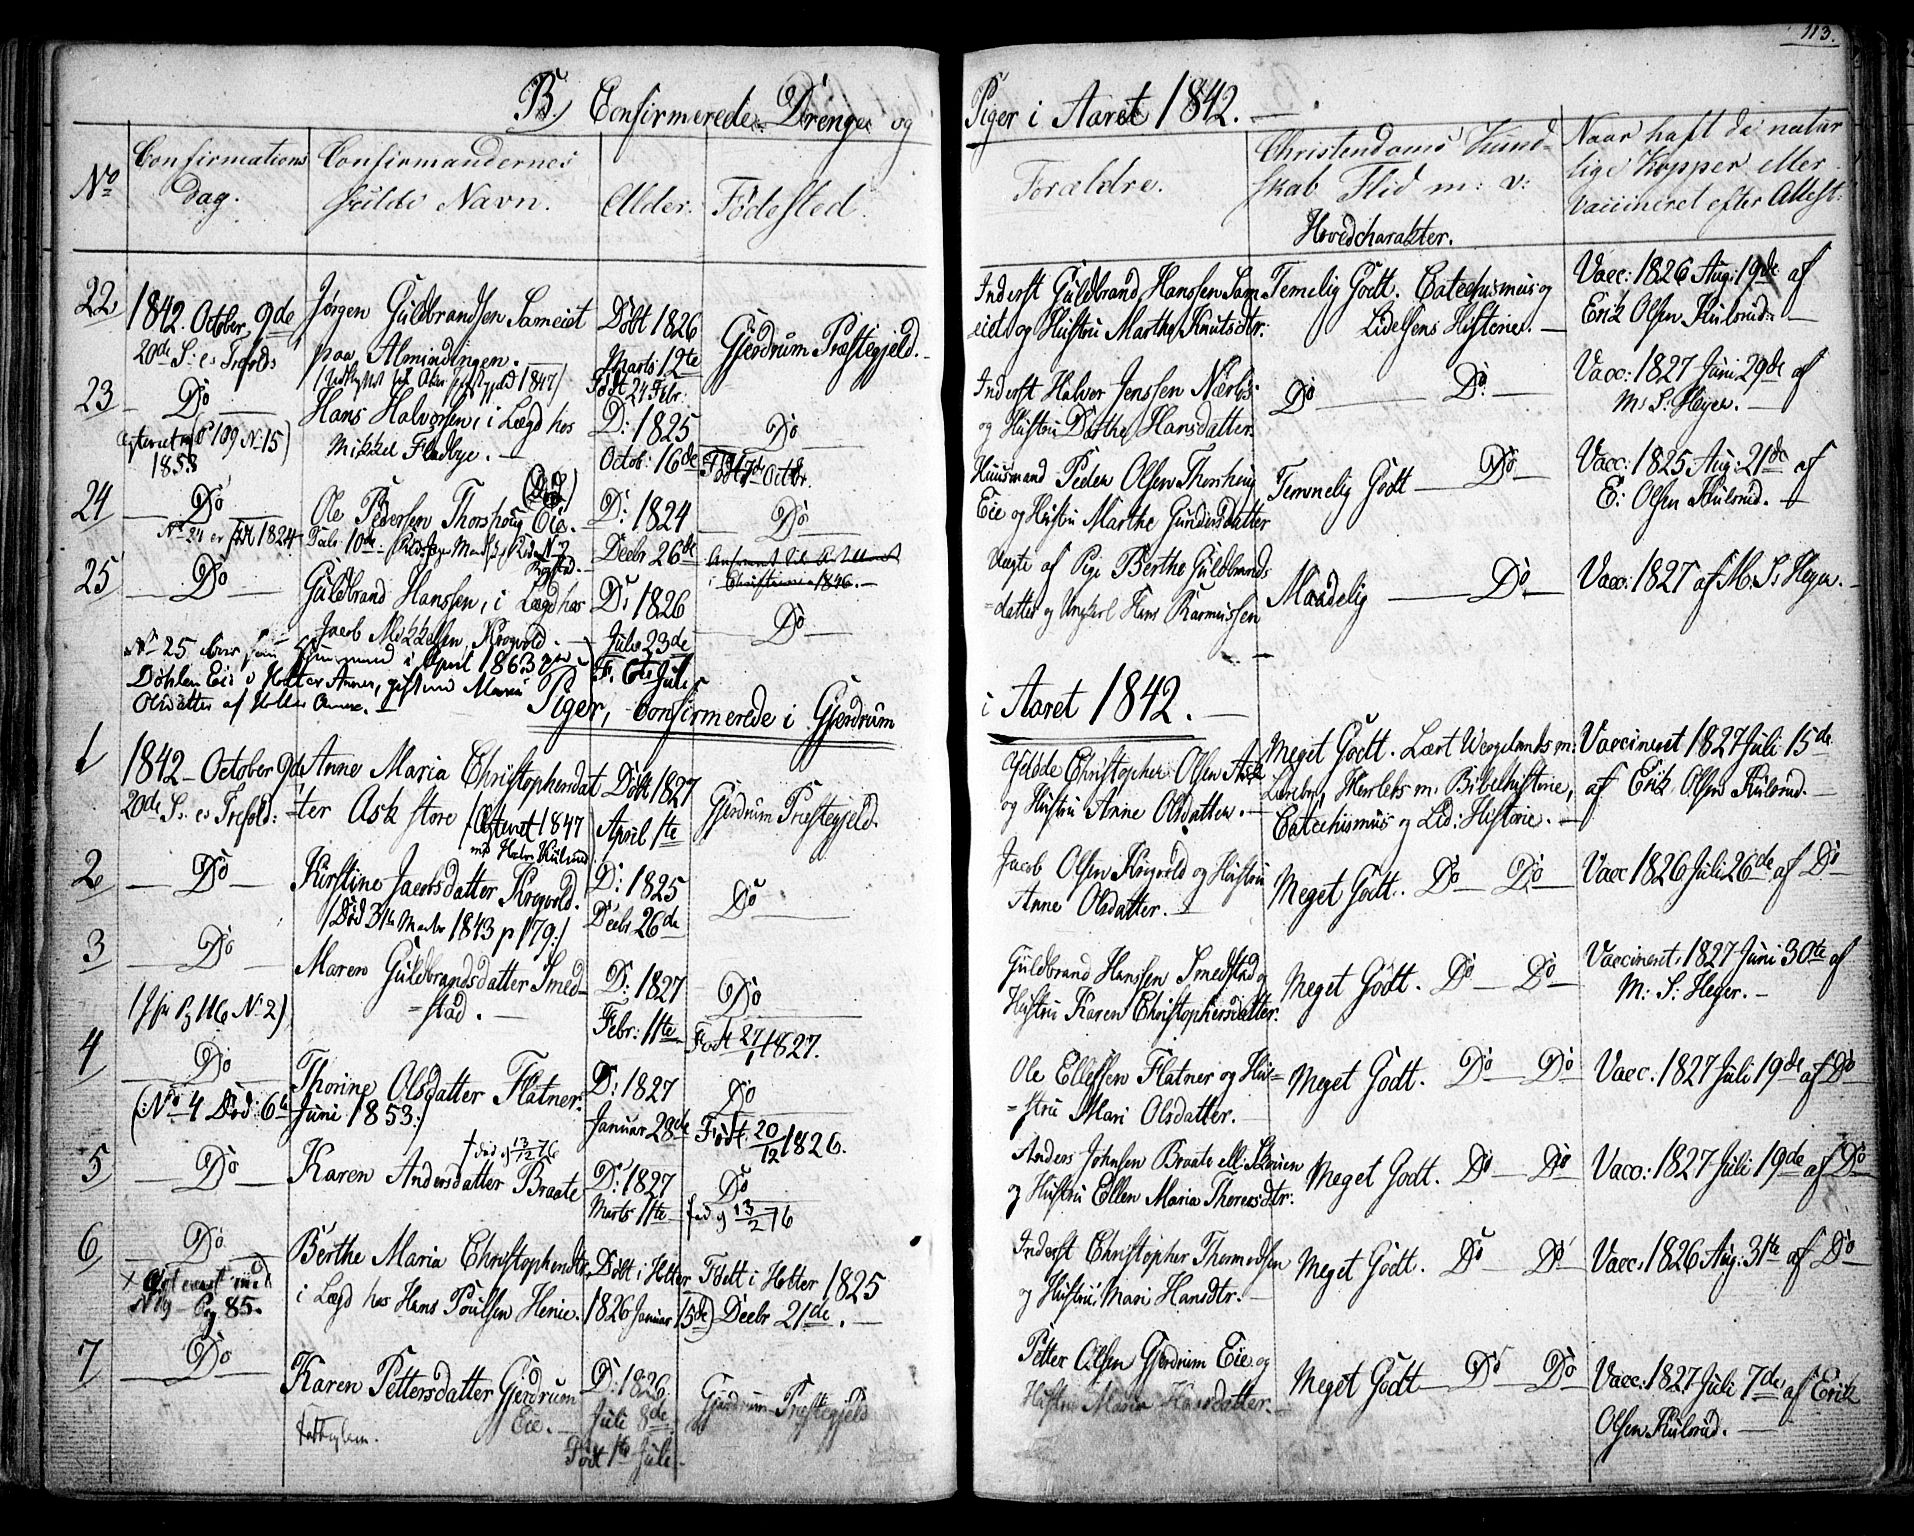 113.
B. Confirmerede Drenge og Piger i Aaret 1842.
No
Confirmations
dag.
Confirmandernes
fulde Navn.
Alder.
Fødested.
Forældre.
Christendoms Kund-
skab Flid m: v:
Hovedcharakter.
Naar haft de natur
lige Kopper eller
Vaccineret efter Attest:
22
1842. October 9de
20de S: e: Trefolds
Jørgen Guldbrandsen Sameiet
paa Almindingen.
Døbt 1826
Marts 12te
Født 24 Febr.
Gjerdrum Præstegjeld.
Inderst Guldbrand Hanssen Sam
eiet og Hustru Marthe Knutsdtr.
Temelig Godt. Catechismus og
Lidelsens Historie.
Vacc: 1826 Aug: 19de af
Erik Olsen Kulsrud.
23
Do
(P 109 No 15)
1858
Hans Halvorsen, i Lægd hos
Mikkel Fladbye.
D: 1825
Octob: 16de
Do
Født 7de Octbr.
Inderst Halver Jenssen Nærbs:
og Hustru Dorthe Hansdatter.
Do Do
Vacc: 1827 Juni 29de af
M: S: Heyer.
24
Do
No 24 er født 1824
Ole Pedersen Thorshoug Eie.
(Død)
D: 1824
Decbr 26de
Do
Christiania 1846.
Huusmand Peder Olsen Thorshoug
Eie og Hustru Marthe Gundersdatter
Temmelig Godt Do
Vacc: 1825 Aug: 21de af
E: Olsen Kulsrud.
25
Do
Guldbrand Hanssen, i Lægd hos
Jacob Mikkelsen Krogvold.
D: 1826
Julii 23de
F. 6te Juli
Do
Uægte af Pige Berthe Guldbrands
datter og Ungkarl Hans Rasmussen
Maadelig Do
Vacc: 1827 af M. S: Heyer.
No 25 blev som Huusmand i April 1863
Døhlen Eie i Holter Annex, gift med Maria
Olsdatter af Holter Annex.
Piger, Confirmerede i Gjerdrum i Aaret 1842.
1
1842 October 9de
20de S. e: Trefold:
Anne Maria Christophersdat
ter Ask store
(Ægteviet 1847
D: Døbt 1827
April 1ste
Gjerdrum Præstegjeld.
Christopher Olsen Ask
og Hustru Anne Olsdatter.
Meget Godt. Lært Wergelands m:
Lærebog, Herslebs m: Bibelhistorie,
Catechismus og Lid: Historie.
Vaccineret 1827 Juli 15de
af Erik Olsen Kulsrud.
2
Do
Kirstine Jacobsdatter Krogvold.
(Død 31te Marts 1843 p 179.)
D: 1825
Decbr 26de
Do
Jacob Olsen Krogvold og Hustru
Anne Olsdatter.
Meget Godt. Do Do
Vacc 1826 Juli 26de af Do
3
Do
(Pg 116 No 2)
Maren Guldbrandsdatter Smed-
stad.
D: 1827
Febr: 11te
Do
Født 27/1 1827.
Guldbrand Hanssen Smedstad og
Hustru Karen Christophersdatter.
Meget Godt. Do Do
Vaccineret 1827 Juni 30te af
M: S: Heyer.
4
Do
(No 4 Død: 6te
Juni 1853.)
Thorine Olsdatter Flatner.
D: 1827
Januar 28de
Do
Født 20/12 1826.
Ole Ellefsen Flatner og Hu-
stru Mari Olsdatter.
Meget Godt. Do Do
Vacc. 1827 Juli 19de af Do
5
Do
Karen Andersdatter Braate
D: 1827
Marts 11te
Do
Anders Johnsen Braate ell: Skoven
og Hustru Ellen Maria Thoresdtr:
Meget Godt. Do Do
Vacc: 1827 Juli 19de af Do
6
Do
Pg 85.
Berthe Maria Christophersdtr,
i Lægd hos Hans Poulsen Henie.
Døbt i Holter
1826 Januar 15de
Født i Holter 1825
Decbr 21de.
Inderst Christopher Thormodsen
og Hustru Mari Hansdtr.
Meget Godt. Do Do
Vacc. 1826 Aug: 31te af Do
7
Do
Karen Pettersdatter Gjerdrum
Eie.
D: 1826
Juli 8de
Født 1te Juli
Gjerdrum Præstegjeld
Petter Olsen Gjerdrum Eie og
Hustru Maria Hansdatter.
Meget Godt Do Do
Vacc: 1827 Juli 7de af Erik
Olsen Kulsrud.